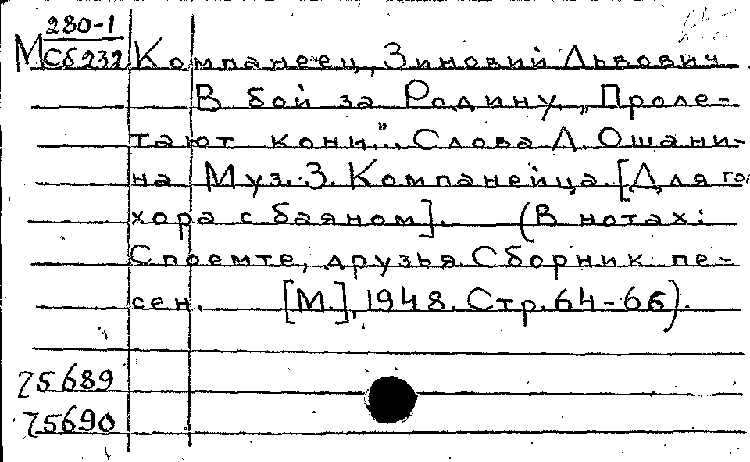 280-1
МСб232 Компанеец, Зиновий Львович
В бой за Родину „Проле-
тают кони". Слова Л. Ошани-
на Муз. З. Компанейца. [Для гол
хора с баяном]. (В нотах:
Споемте, друзья Сборник пе-
сен. [М.], 1948. Стр. 64-66).
75689
75690